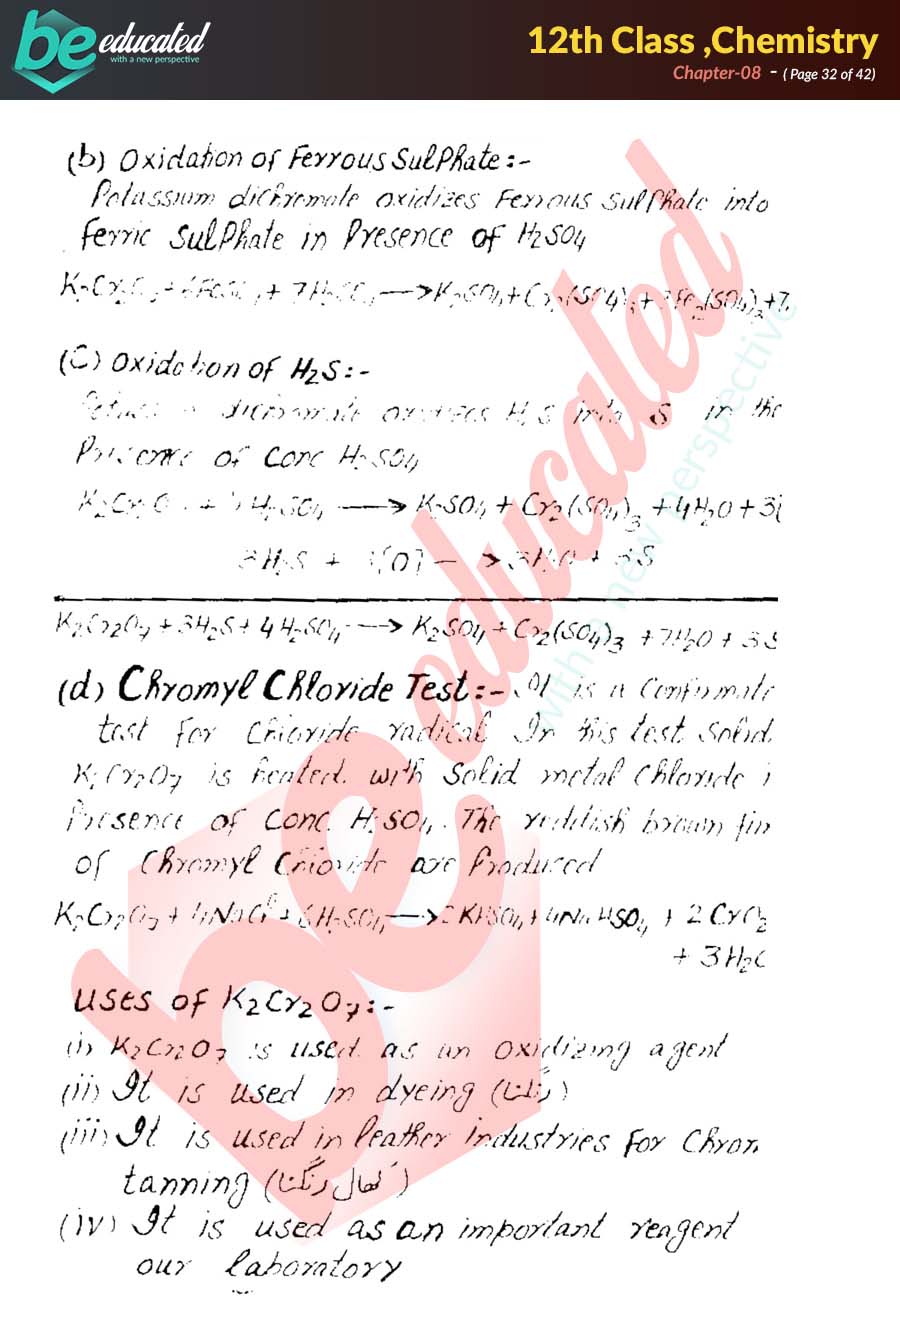 be educated
with a new perspective
12th Class ,Chemistry
Chapter-08 - ( Page 32 of 42)
(b) Oxidation of Ferrous Sulphate:-
Potassium dichromate oxidizes Ferrous Sulphate into
Ferric Sulphate in Presence of H2SO4
K2Cr2O7 + 6FeSO4 + 7H2SO4 → K2SO4 + Cr2(SO4)3 + 3Fe2(SO4)3 + 7
(C) Oxidation of H2S:-
dichromate oxidizes H2S into S in the
Presence of Conc H2SO4
K2Cr2O7 + 4H2SO4 → K2SO4 + Cr2(SO4)3 + 4H2O + 3[
3H2S + 3[O] → 3H2O + 3S
K2Cr2O7 + 3H2S + 4H2SO4 → K2SO4 + Cr2(SO4)3 + 7H2O + 3S
(d) Chromyl Chloride Test:- It is a Confirmat
test for Chloride radical In this test Solid
K2Cr2O7 is heated with Solid metal Chloride i
Presence of Conc. H2SO4. The reddish brown
of Chromyl Chloride are Produced
K2Cr2O7 + 4NaCl + 6H2SO4 → 2KHSO4 + 4NaHSO4 + 2Cr
+ 3H2
Uses of K2Cr2O7:-
(i) K2Cr2O7 is used as an oxidizing agent
(ii) It is used in dyeing (رنگنا)
(iii) It is used in leather industries For Chrom
tanning (کھال رنگنا)
(iv) It is used as an important reagent
our laboratory
be educated
with a new perspective